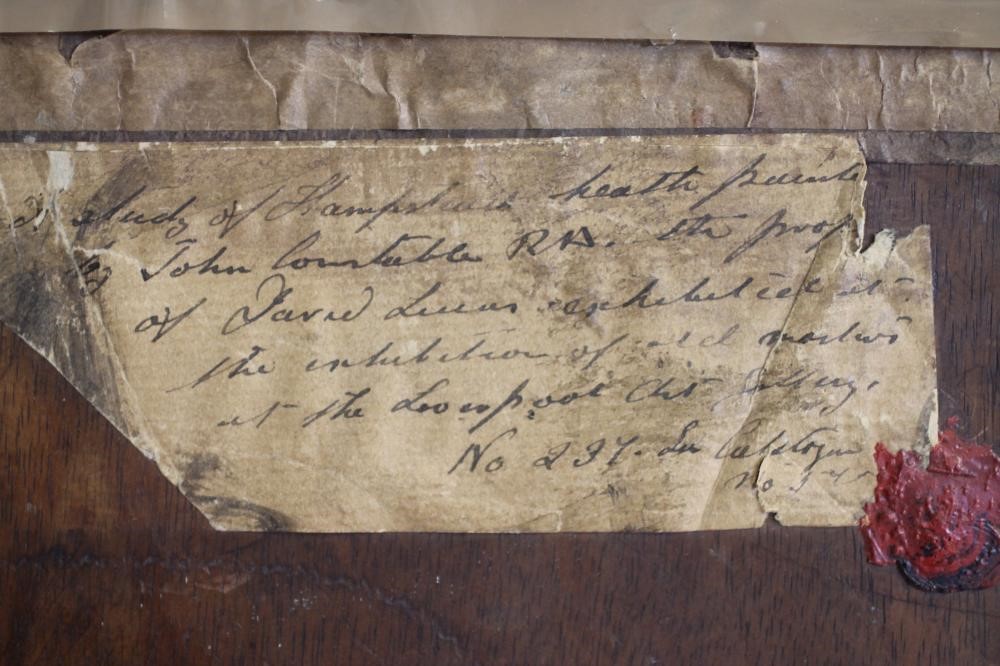 A study of Hampstead heath painte
by John Constable RA. the prop
of David Lucas exhibited at
the exhibition of old masters
at the Liverpool Art Gallery,
No 237. In Catalogue
No